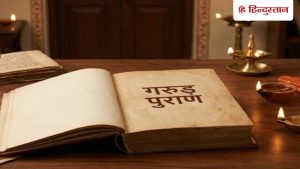 हिन्दुस्तान
गरुड़
पुराण